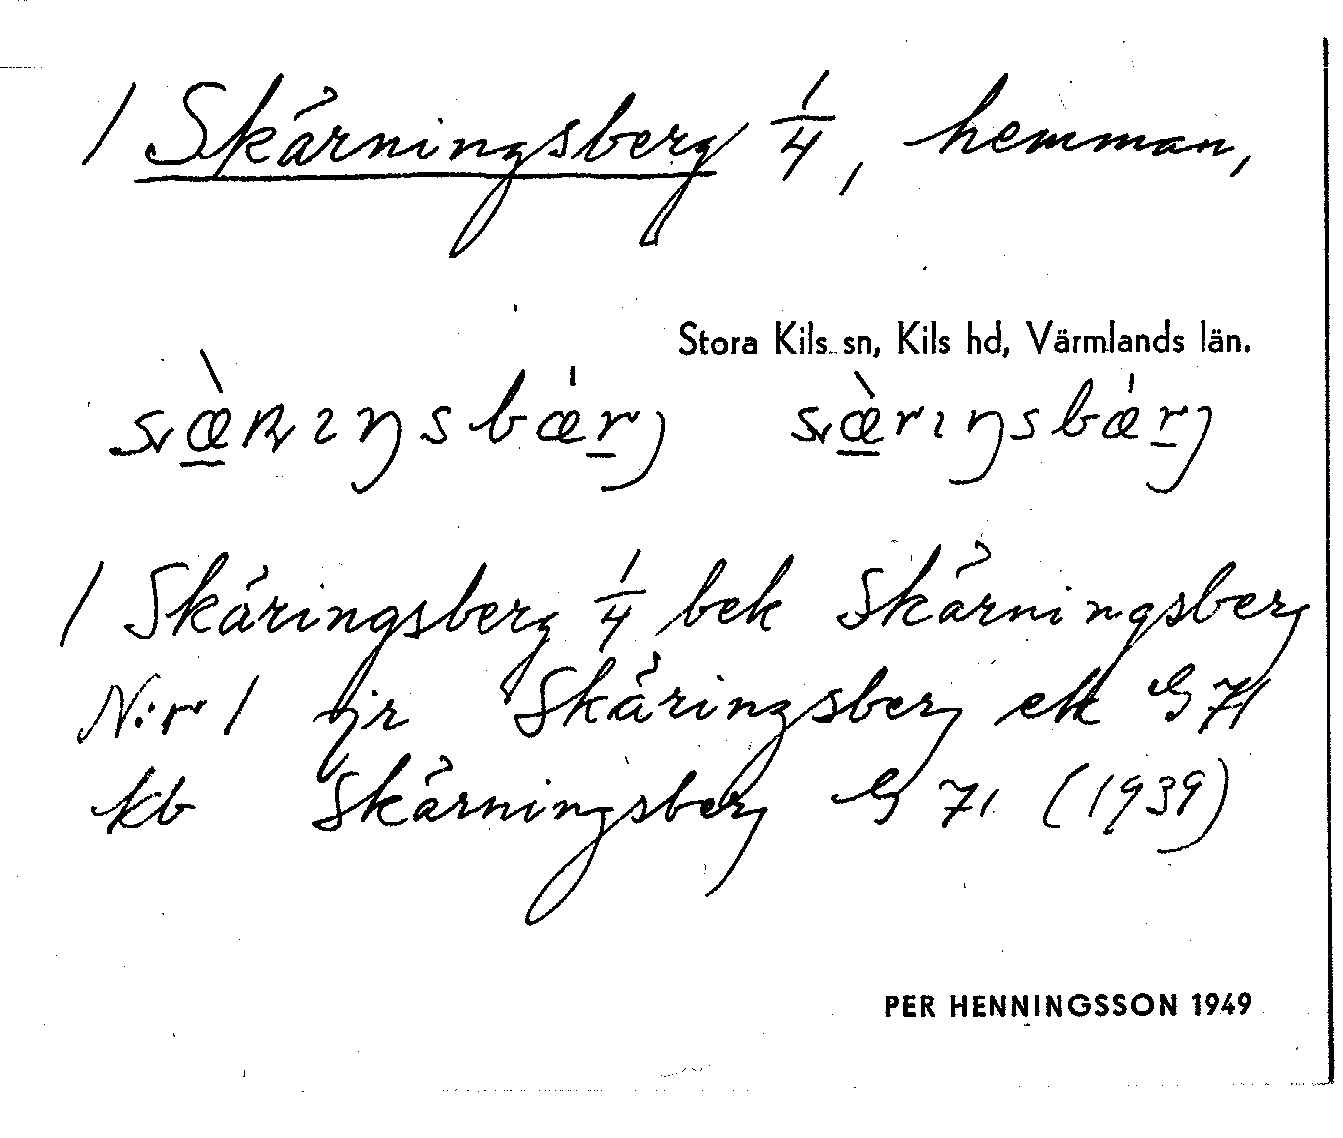 1 Skärningsberg 1/4, hemman,
Stora Kils sn, Kils hd, Värmlands län.
1 Skäringsberg 1/4 bek Skärningsberg
N:r 1 jr Skäringsberg ek G 71
kb Skärningsberg G 71 (1939)
PER HENNINGSSON 1949